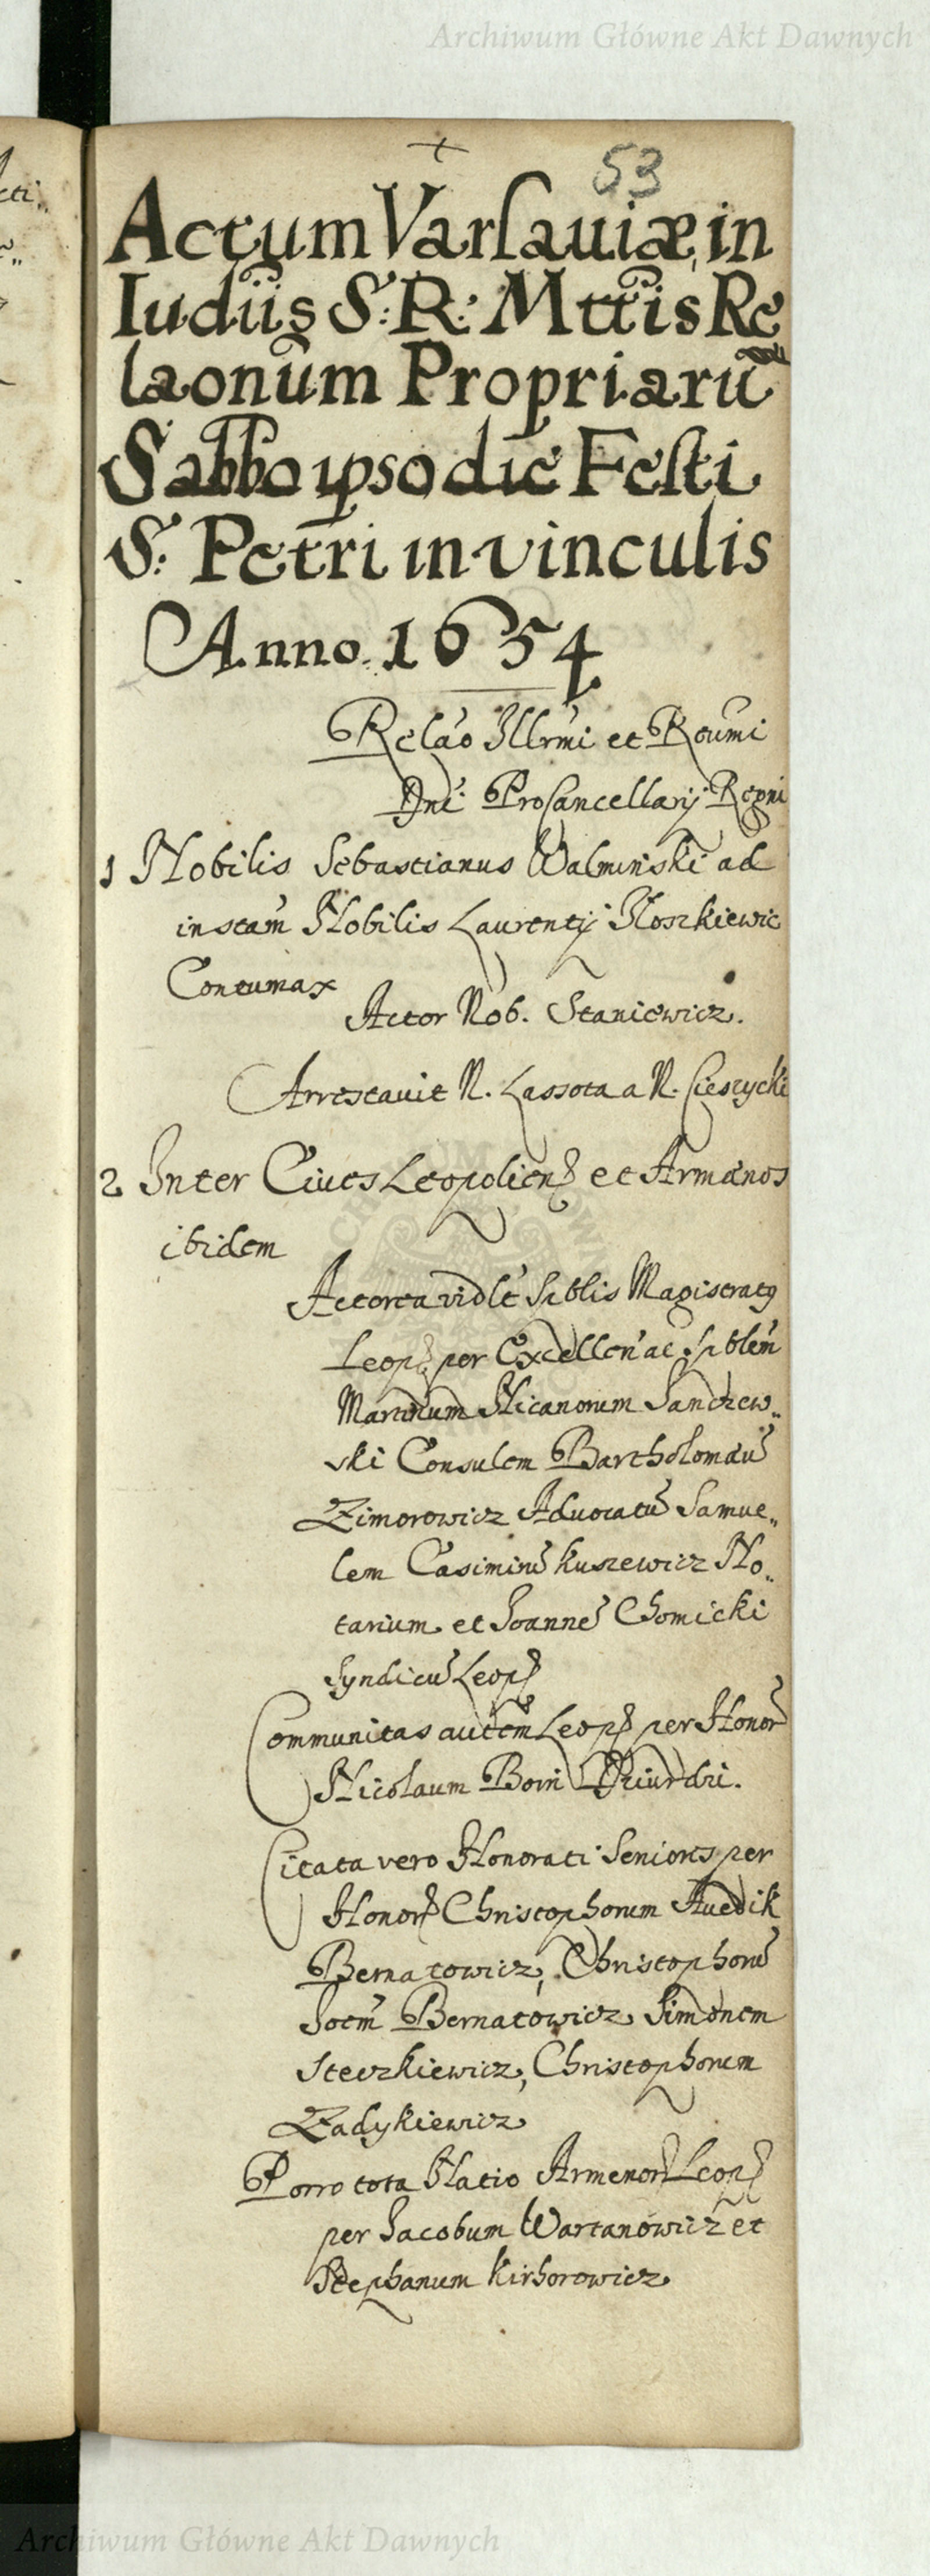 Archiwum Główne Akt Dawnych
53
Actum Varsauiæ in
Iudiis S: R: Mttis Re
laonum Propriarũ
Sabbo ipso die Festi
S: Petri in vinculis
Anno. 1654
Relao Illrmi et Roumi
Dni Procancellarij Regni
1 Nobilis Sebastianus Walminski ad
instam Nobilis Laurentij Noszkiewic
Contumax
Actor Nob. Staniewicz.
Arrestauit N. Lassota a N. Cieszycki
2 Inter Ciues Leopolien et Armenos
ibidem
Actorea vidlt Sptblis Magistratg
Leop per Excellen ac Sptblem
Martinum Nicanorum
ski Consulem Bartholomæũ
Zimorowicz Aduocatũ Samue„
lem Casimirũ Kuszewicz No„
tarium et Joannẽ Chomicki
Syndicũ Leop
Communitas autem Leop per Honor
Nicolaum Boim
Citata vero Honorati Seniores per
Honor Christophorum Auedik
Bernatowicz, Christophorũ
Bernatowicz Simonem
Steczkiewicz, Christophorum
Zadykiewicz
Porro tota Natio Armenor Leop
per Jacobum Wartanowicz et
Stephanum Kirhorowicz
Archiwum Główne Akt Dawnych